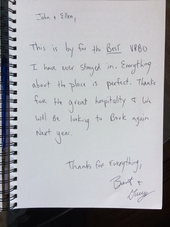 John & Ellen,
This is by far the Best VRBO
I have ever stayed in. Everything
about the place is perfect. Thanks
for the great hospitality & We
will be looking to Book again
Next year.
Thanks for everything,